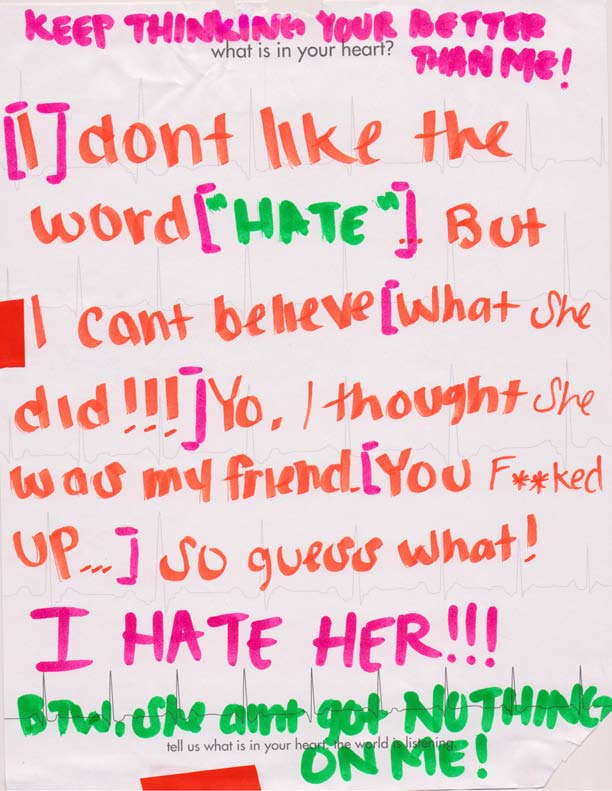 KEEP THINKING YOUR BETTER
THAN ME!
what is in your heart?
[I] dont like the
word ["HATE"]... But
I cant believe [what she
did!!!] Yo, I thought she
was my friend. [You F**ked
UP...] so guess what!
I HATE HER!!!
BTW. She aint got NUTHING
ON ME!
tell us what is in your heart, the world is listening.